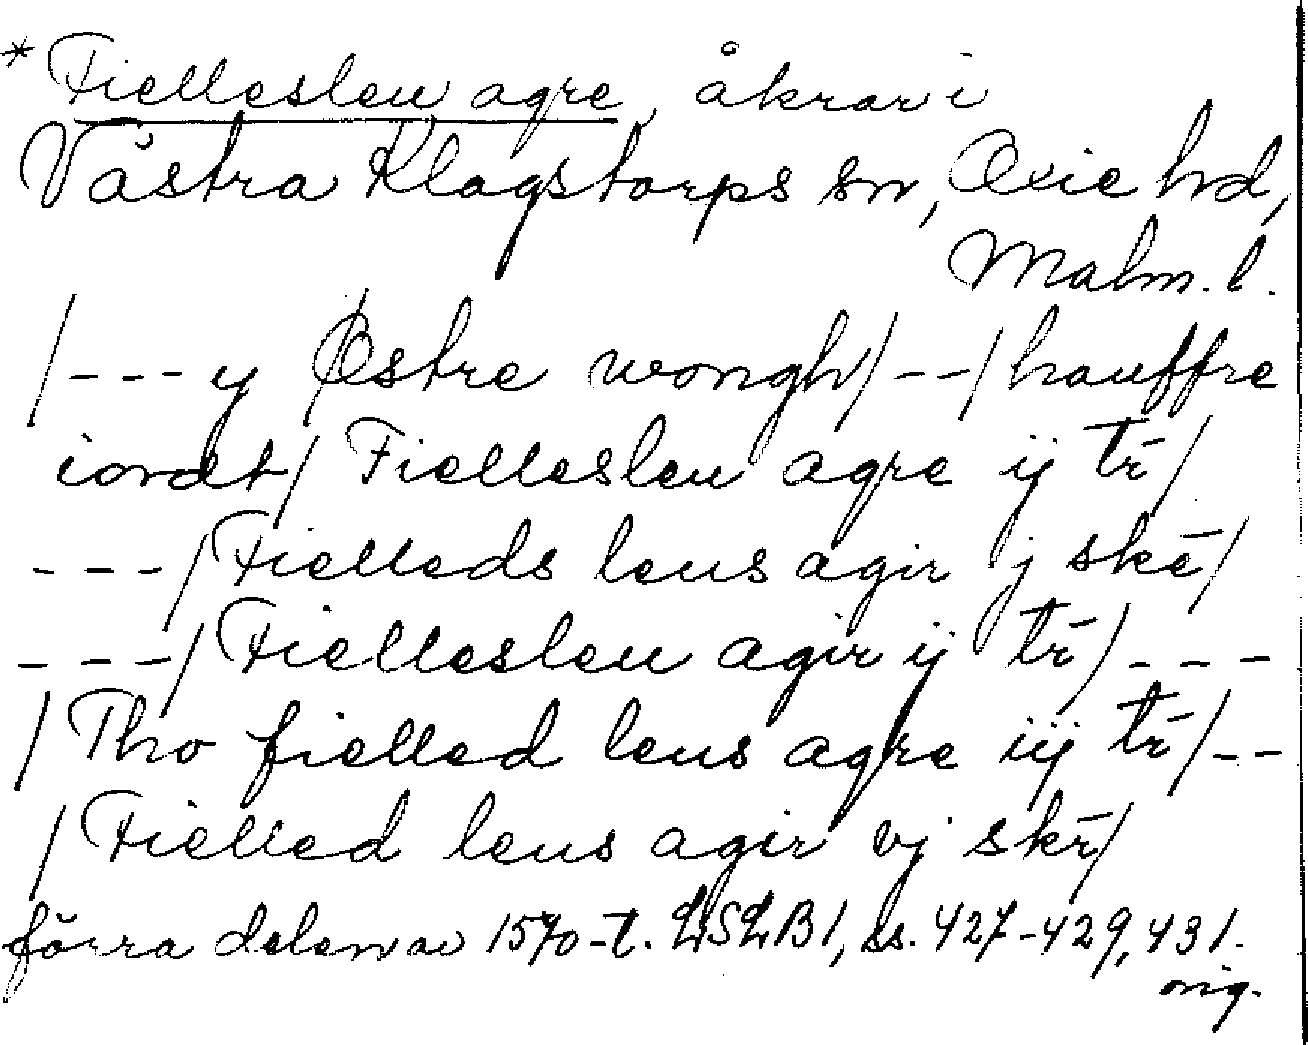 * Fielleslew agre, åkrar i
Västra Klagstorps sn, Oxie hd,
Malm. l.
/---y Østre wongh/--/hauffre
iordt/ Fielleslew agre ij tr̄/
---/Fielleds leus agir j skē/
---/Fielleslew agir ij tr̄/---
/Tho fielled leus agre iij tr̄/--
/Fielled leus agir vj skr̄/
förra delen av 1570-t. LSLB1, ss. 427-429, 431.
orig.